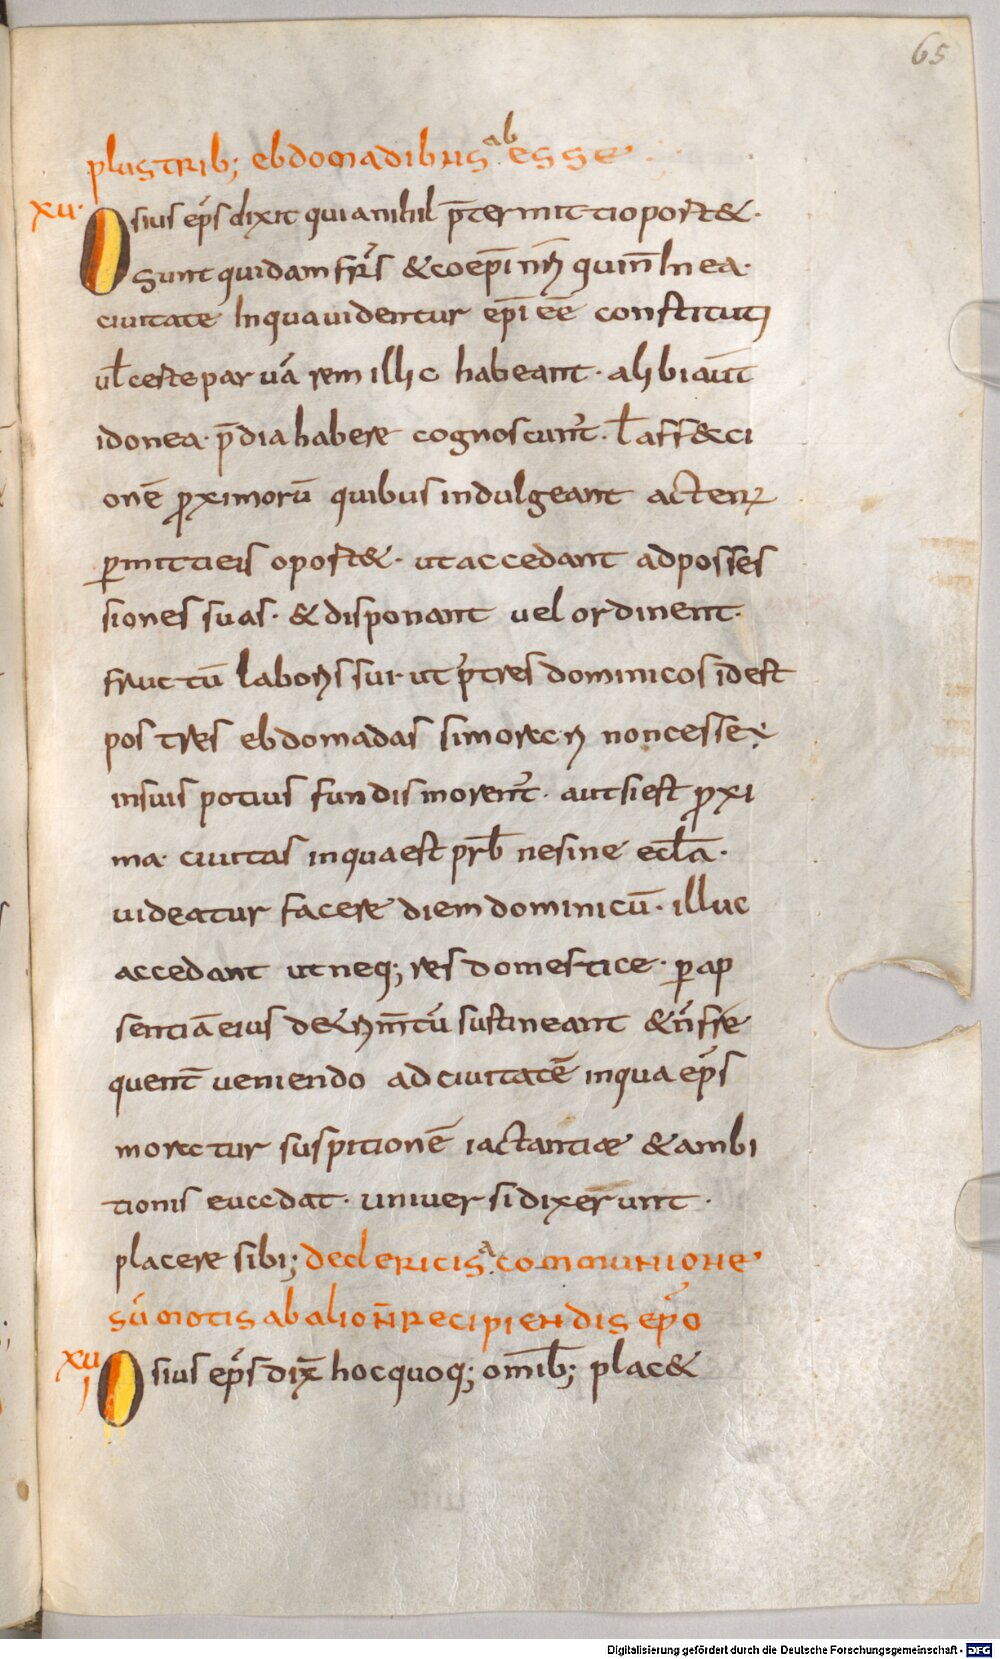 65
plus trib; ebdomadibus ab esse
xu. Osius ep̄s dixit quia nihil p̄termitti oport&.
Sunt quidam fr̄s & coep̄i nr̄i qui n̄ In ea.
ciuitate In qua uidentur ep̄i eē constituti
ul̄ certe paruā rem illic habeant. alibi aūt
idonea. p̄dia habere cognoscunt̄. l̄ aff&ci
onē ꝓximorū quibus indulgeant actenꝰ
ꝑmitti eis oport&. ut accedant ad posses
siones suas. & disponant uel ordinent.
fructū laboris sui. ut p̄ tres dominicos id est
pos tres ebdomadas si morari non cesse
in suis potius fundis morent̄. aut si est ꝓxi
ma. ciuitas in qua est prb̄ ne sine ecl̄a.
uideatur facere diem dominicū. illuc
accedant ut neq; res domestice. ꝑ ap
sentiā eius d&rim̄tū sustineant & n̄ fre
quent̄ ueniendo ad ciuitatē in qua ep̄s
moretur suspitionē iactantiæ & ambi
tionis euedat. uniuersi dixerunt.
placere sibi; de clericis a communione
sūmotis ab alio n̄ recipiendis ep̄o
xui Osius ep̄s dix̄ hoc quoq; omīb; plac&
Digitalisierung gefördert durch die Deutsche Forschungsgemeinschaft - DFG